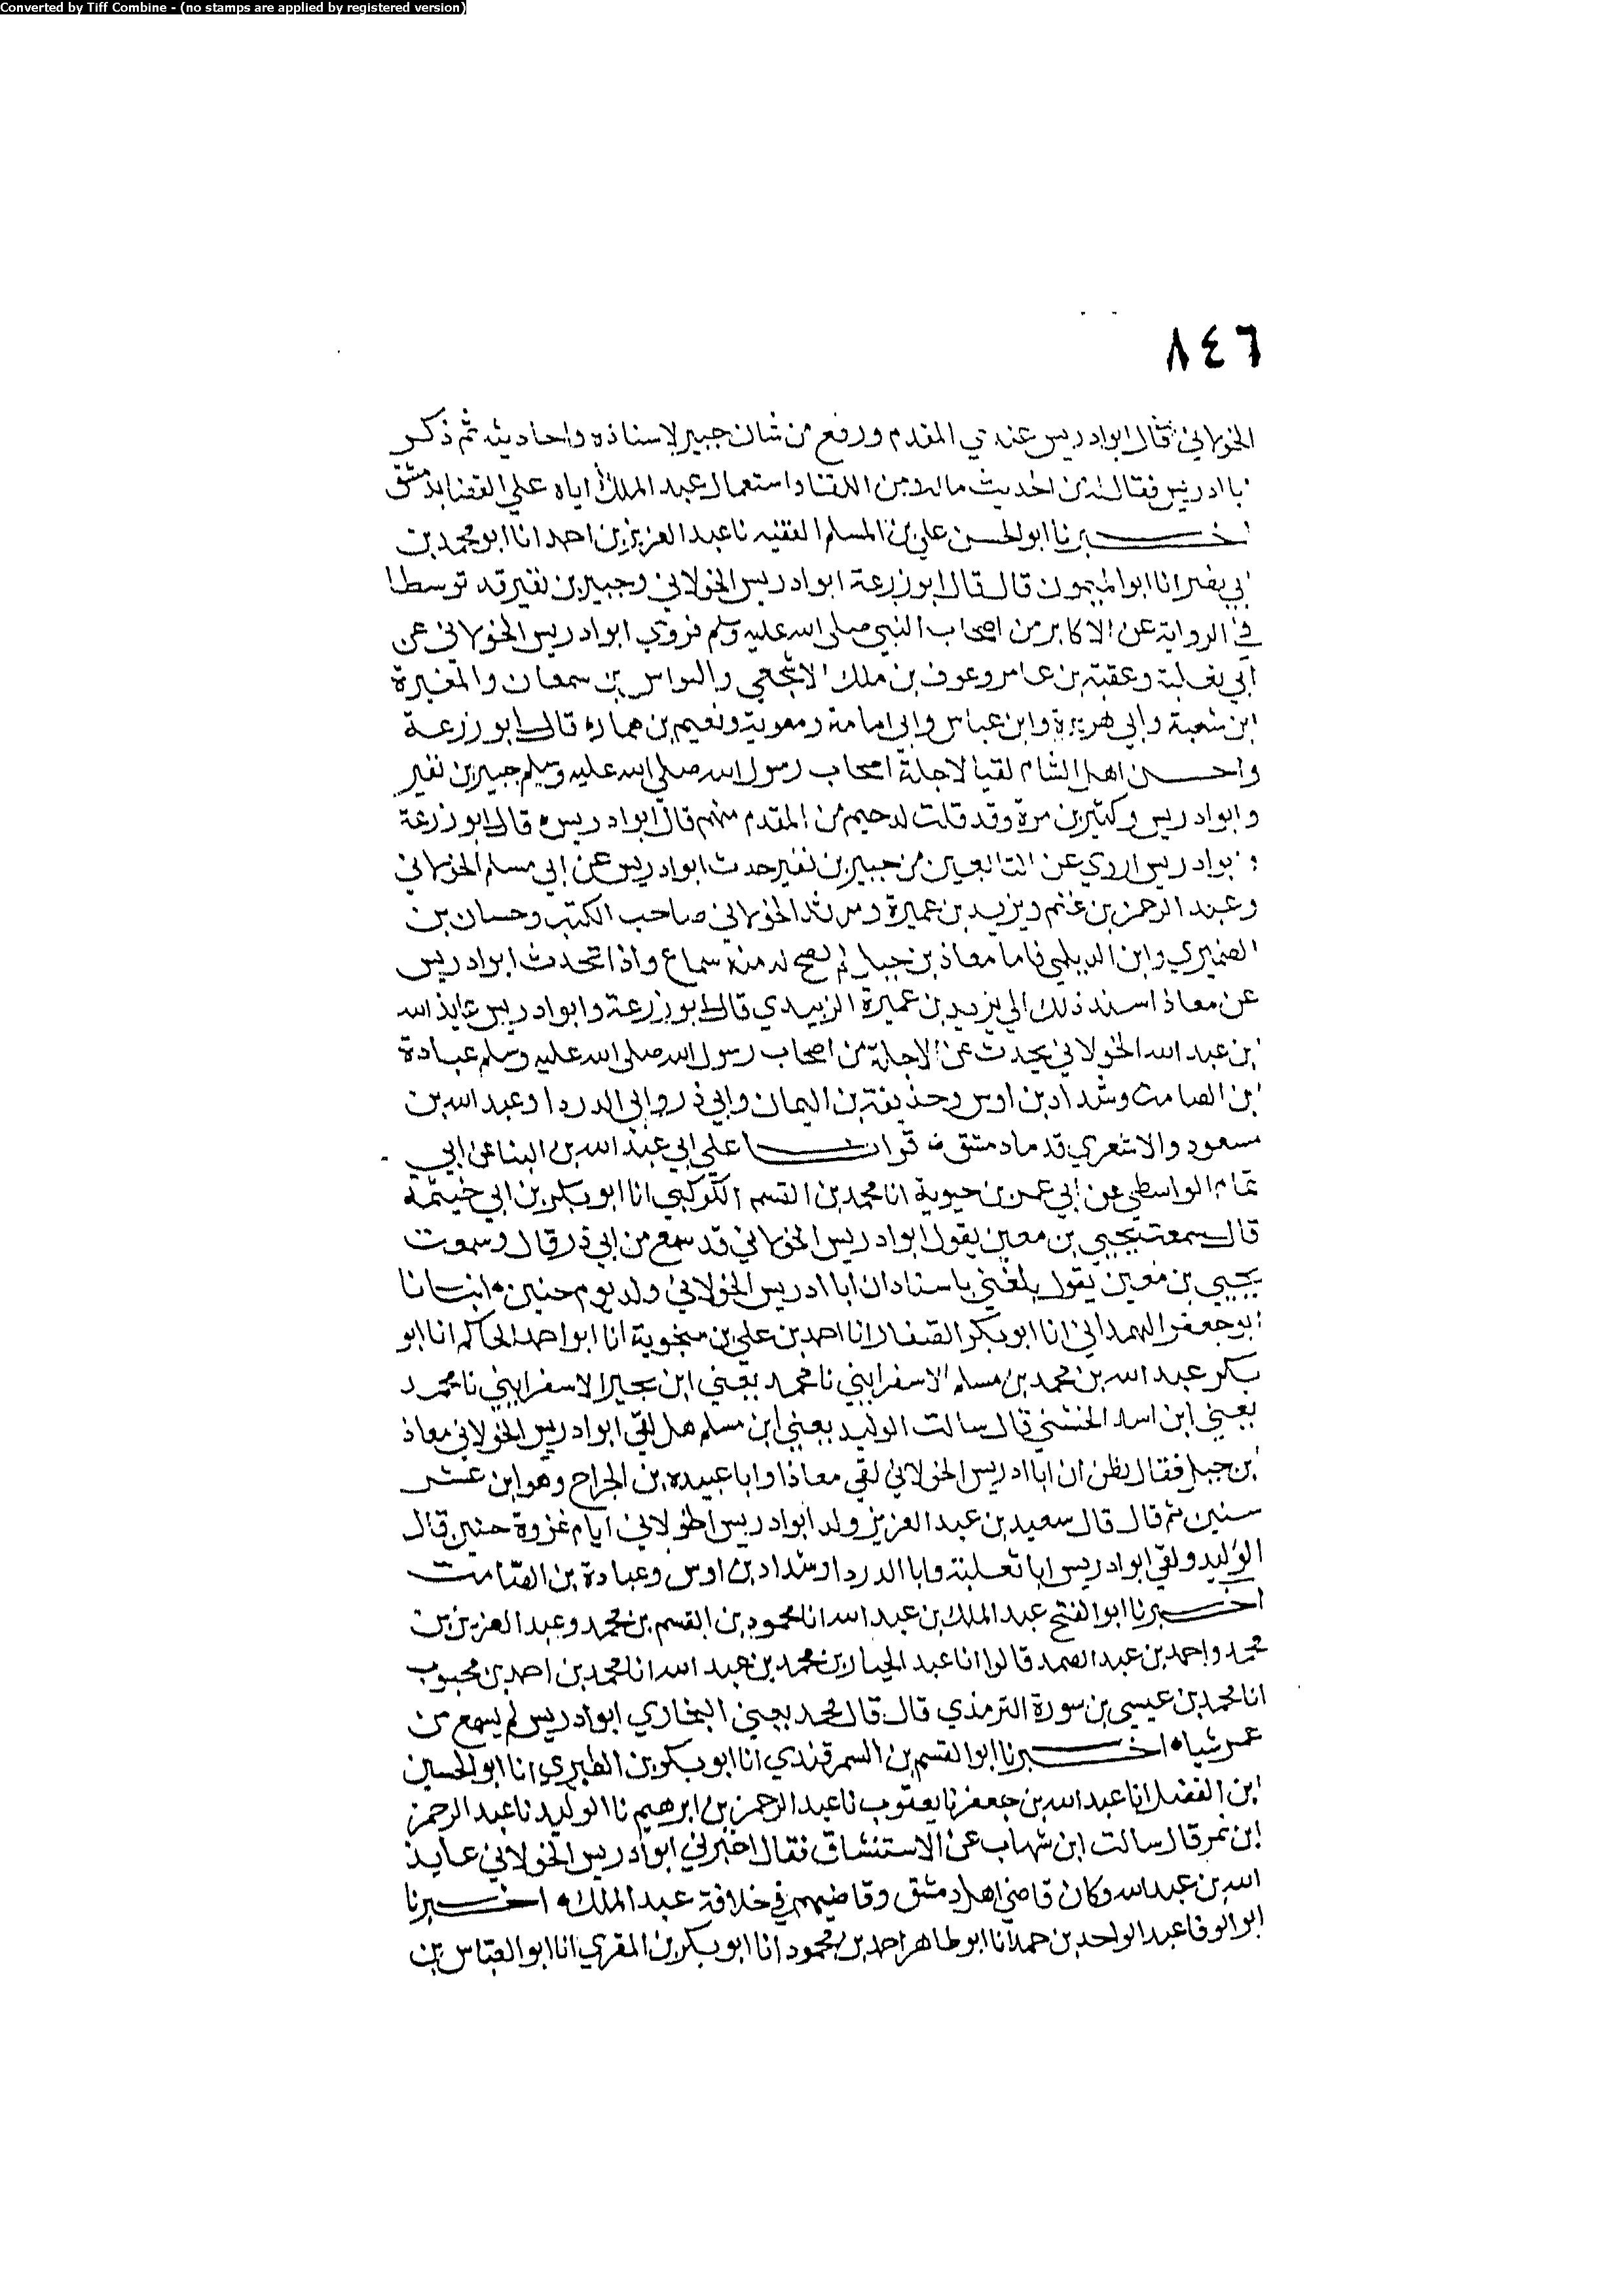 Converted by Tiff Combine - (no stamps are applied by registered version)
٨٤٦
الخولاني قال ابو ادريس عندي المقدم ورفع من شان جبير لاسناذه واحاديثه ثم ذكر
با ادريس فقال له من الحديث ماله ومن اللقا واستعمال عبد الملك اياه علي القضا بدمشق
اخبرنا ابو الحسن علي بن المسلم الفقيه نا عبد العزيز بن احمد انا ابو محمد بن
ابي نصر انا ابو الميمون قال قال ابو زرعة ابو ادريس الخولاني وجبير بن نفير قد توسطا
في الرواية عن الاكابر من اصحاب النبي صلى الله عليه وسلم فروي ابو ادريس الخولاني عن
ابي ثعلبة وعقبة بن عامر وعوف بن ملك الاشجعي والنواس بن سمعان والمغيرة
ابن شعبة وابي هريرة وابن عباس وابي امامة ومعوية ونعيم بن همار قال ابو زرعة
واحسن اهل الشام لقيا لاجلة اصحاب رسول الله صلى الله عليه وسلم جبير بن نفير
وابو ادريس وكثير بن مرة وقد قلت لدحيم من المقدم منهم قال ابو ادريس قال ابو زرعة
وابو ادريس اروي عن التابعين من جبير بن نفير حدث ابو ادريس عن ابي مسلم الخولاني
وعبد الرحمن بن غنم ويزيد بن عميرة ومرثد الخولاني صاحب الكتب وحسان بن
الضميري وابن الديلمي فاما معاذ بن جبل لم يصح له منه سماع واذا تحدث ابو ادريس
عن معاذ اسند ذلك الي يزيد بن عميرة الزبيدي قال ابو زرعة وابو ادريس عايذ الله
ابن عبد الله الخولاني يحدث عن الاجلة من اصحاب رسول الله صلى الله عليه وسلم عبادة
ابن الصامت وشداد بن اوس وحذيفة بن اليمان وابي ذر وابي الدردا وعبد الله بن
مسعود والاشعري قدما دمشق قرات علي ابي عبد الله بن البنا عن ابي
تمام الواسطي عن ابي عمر بن حيوية انا محمد بن القسم الكوكبي انا ابو بكر بن ابي خيثمة
قال سمعت يحيي بن معين يقول ابو ادريس الخولاني قد سمع من ابي ذر قال وسمعت
يحيي بن معين يقول بلغني باسناد ان ابا ادريس الخولاني ولد يوم حنين انبانا
ابو جعفر الهمداني انا ابو بكر الصفار انا احمد بن علي بن منجوية انا ابو احمد الحاكم انا ابو
بكر عبد الله بن محمد بن مسلم الاسفرايني نا محمد يعني ابن بجير الاسفرايني نا محمد
يعني ابن اسد الخشني قال سالت الوليد يعني ابن مسلم هل لقي ابو ادريس الخولاني معاذ
ابن جبل فقال نظن ان ابا ادريس الخولاني لقي معاذا وابا عبيده بن الجراح وهو ابن عشر
سنين ثم قال قال سعيد بن عبد العزيز ولد ابو ادريس الخولاني ايام غزوة حنين قال
الوليد ولقي ابو ادريس ابا ثعلبة وابا الدردا وشداد بن اوس وعبادة بن الصامت
اخبرنا ابو الفتح عبد الملك بن عبد الله انا محمود بن القسم بن محمد وعبد العزيز بن
محمد واحمد بن عبد الصمد قالوا انا عبد الجبار بن محمد بن عبد الله انا محمد بن احمد بن محبوب
انا محمد بن عيسى بن سورة الترمذي قال قال محمد يعني البخاري ابو ادريس لم يسمع من
عمر شيا اخبرنا ابو القسم بن السمرقندي انا ابو بكر بن الطبري انا ابو الحسين
ابن الفضل انا عبد الله بن جعفر نا يعقوب نا عبد الرحمن بن ابرهيم نا الوليد نا عبد الرحمن
ابن نمر قال سالت ابن شهاب عن الاستنشاق فقال اخبرني ابو ادريس الخولاني عايذ
الله بن عبد الله وكان قاضي اهل دمشق وقاضيهم في خلافة عبد الملك اخبرنا
ابو الوفا عبد الواحد بن حمد انا ابو طاهر احمد بن محمود انا ابو بكر بن المقري انا ابو العباس بن